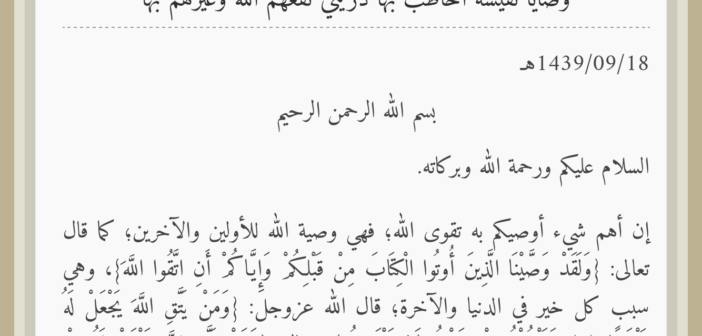 وصايا نفيسة أخاطب بها ذريتي نفعهم الله وغيرهم بها
1439/09/18هـ
بسم الله الرحمن الرحيم
السلام عليكم ورحمة الله وبركاته.
إن أهم شيء أوصيكم به تقوى الله؛ فهي وصية الله للأولين والآخرين؛ كما قال
تعالى: {وَلَقَدْ وَصَّيْنَا الَّذِينَ أُوتُوا الْكِتَابَ مِنْ قَبْلِكُمْ وَإِيَّاكُمْ أَنِ اتَّقُوا اللَّهَ}، وهي
سبب كل خير في الدنيا والآخرة؛ قال الله عزوجل: {وَمَنْ يَتَّقِ اللَّهَ يَجْعَلْ لَهُ